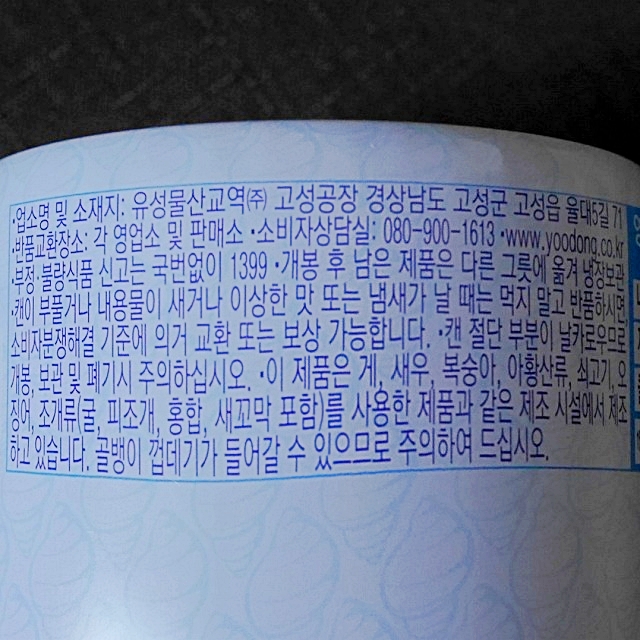 ·업소명 및 소재지: 유성물산교역㈜ 고성공장 경상남도 고성군 고성읍 율대5길
·반품교환장소: 각 영업소 및 판매소 ·소비자상담실: 080-900-1613 ·www.yoodong.co.kr
·부정·불량식품 신고는 국번없이 1399 ·개봉 후 남은 제품은 다른 그릇에 옮겨 냉장보관
·캔이 부풀거나 내용물이 새거나 이상한 맛 또는 냄새가 날 때는 먹지 말고 반품하시면
소비자분쟁해결 기준에 의거 교환 또는 보상 가능합니다. ·캔 절단 부분이 날카로우므로
개봉, 보관 및 폐기시 주의하십시오. ·이 제품은 게, 새우, 복숭아, 아황산류, 쇠고기, 오
징어, 조개류(굴, 피조개, 홍합, 새꼬막 포함)를 사용한 제품과 같은 제조 시설에서 제조
하고 있습니다. 골뱅이 껍데기가 들어갈 수 있으므로 주의하여 드십시오.